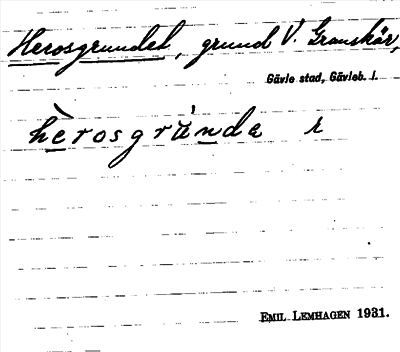 Herosgrundet, grund V. Granskär,
Gävle stad, Gävleb. l.
hèrosgrúnda r
EMIL LEMHAGEN 1931.